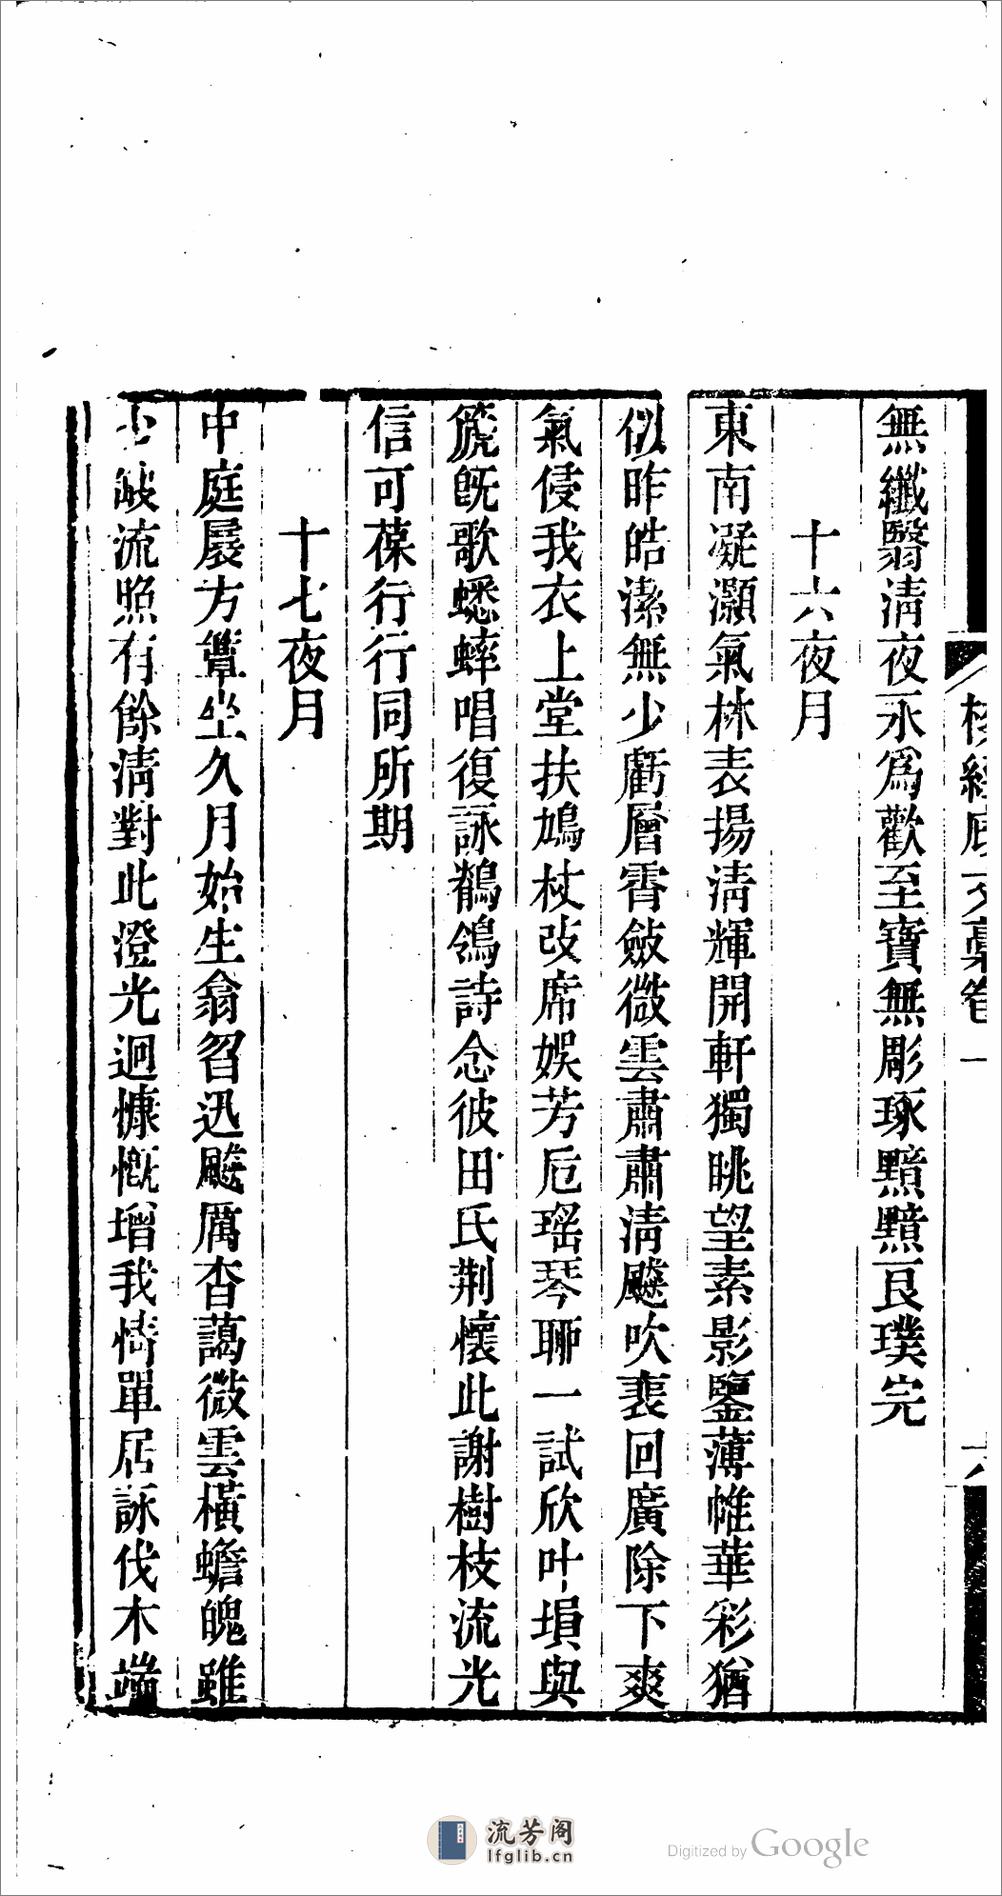 校經廎文藁卷一
六
無纖翳淸夜永爲歡至寶無彫琢黯黯艮璞完
十六夜月
東南凝灝氣林表揚淸輝開軒獨眺望素影鑒薄帷華彩猶
似昨皓潔無少虧層霄斂微雲肅肅淸飈吹裵回廣除下爽
氣侵我衣上堂扶鳩杖改席娛芳卮瑤琴聊一試欣叶塤與
篪旣歌蟋蟀唱復詠鶺鴒詩念彼田氏荆懷此謝樹枝流光
信可葆行行同所期
十七夜月
中庭晷方
坐久月始生翕曶迅飈厲杳藹微雲橫蟾魄雖
少缺流照有餘淸對此澄光迥慷慨增我情單居詠伐木端
流芳阁
lfglib.cn
Digitized by Google